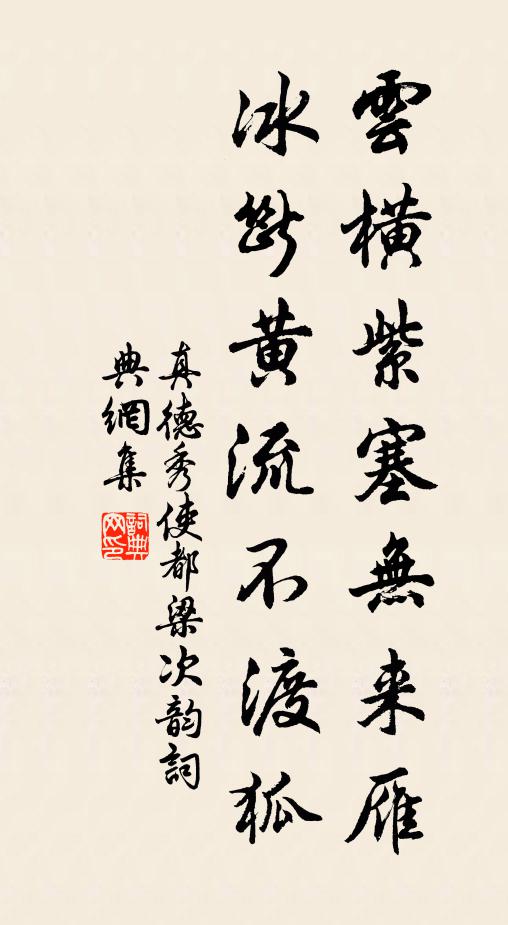 雲橫紫塞無来雁
冰斷黄流不渡狐
真德秀使都梁次韵詞
典網集
詞典網印